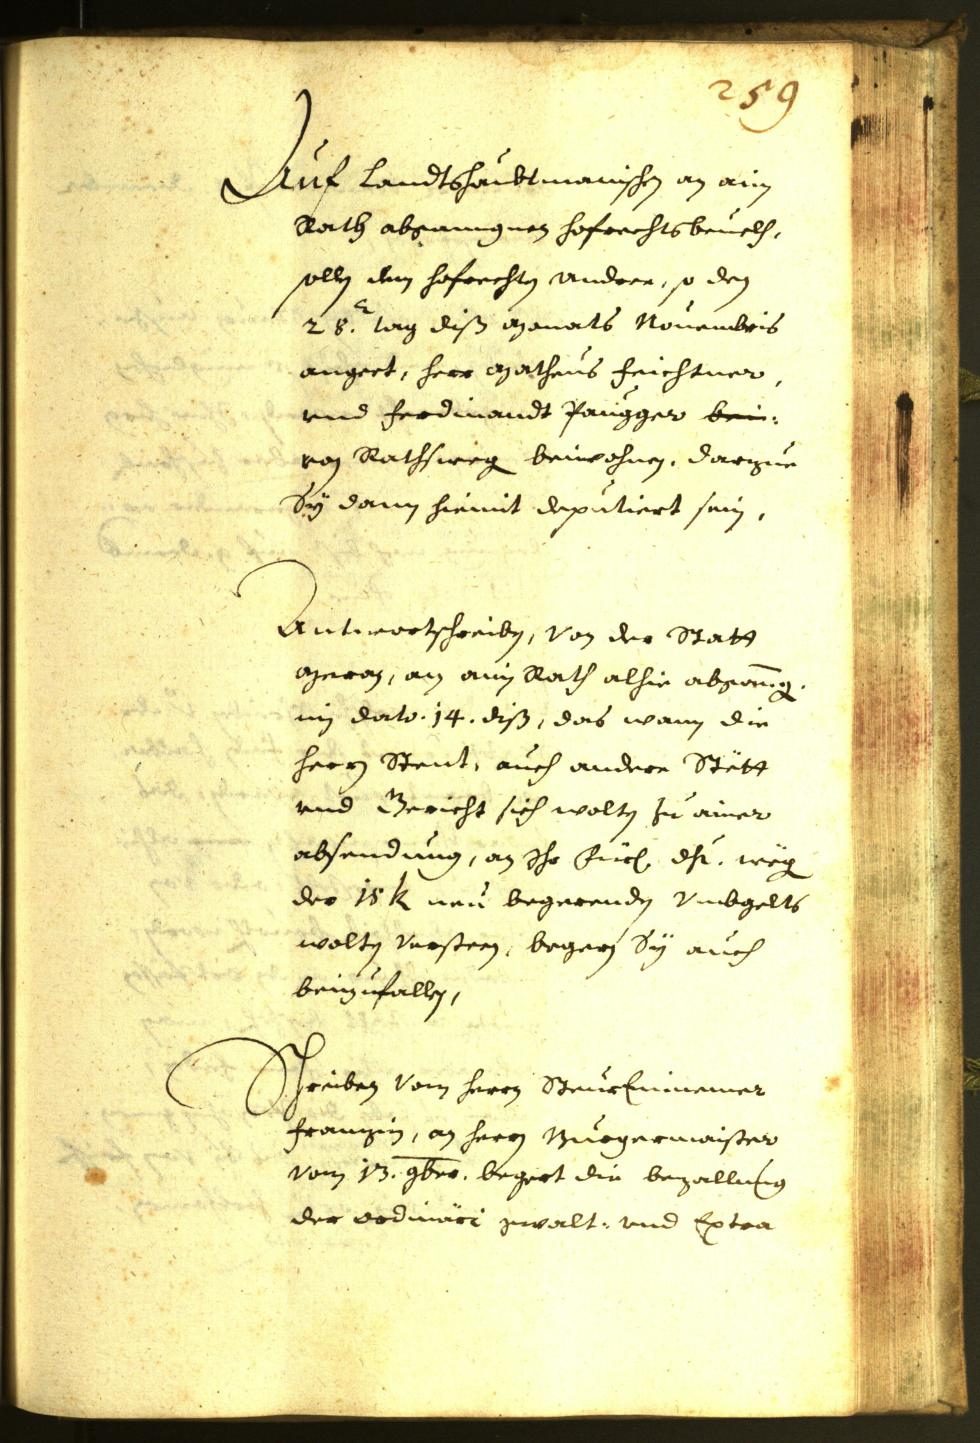 259
Auf Landtshaubtmanischen an ain
Rath abgangnen hofrechtsbeuelch,
solln dem hofrechten andere, so den
28.ten tag diß Monats Nouembris
angeet, herr Matheus Feichtner,
vnd Ferdinandt Paugger bein:
von Rathsweg beiwohnen, darzue
Sÿ dann hiemit deputiert sein,
Antwortschreiben, von der Statt
Meran, an ain Rath alhie abgang.
im dato. 14. diß, das wann die
herrn Stent, auch andere Stött
vnd Gericht sich wolten zu ainer
absendung, an Ihr Fürl. dht. weg
der 18 k neu begerenden Vmbgelts
wolten versteen, begern Sÿ auch
beinzufallen,
Schreiben vom herrn SteurEinnemer
Franzin, an herrn Burgermaister
vom 13. 9ber. begert die bezallung
der ordinäri gwalt: vnd Extra